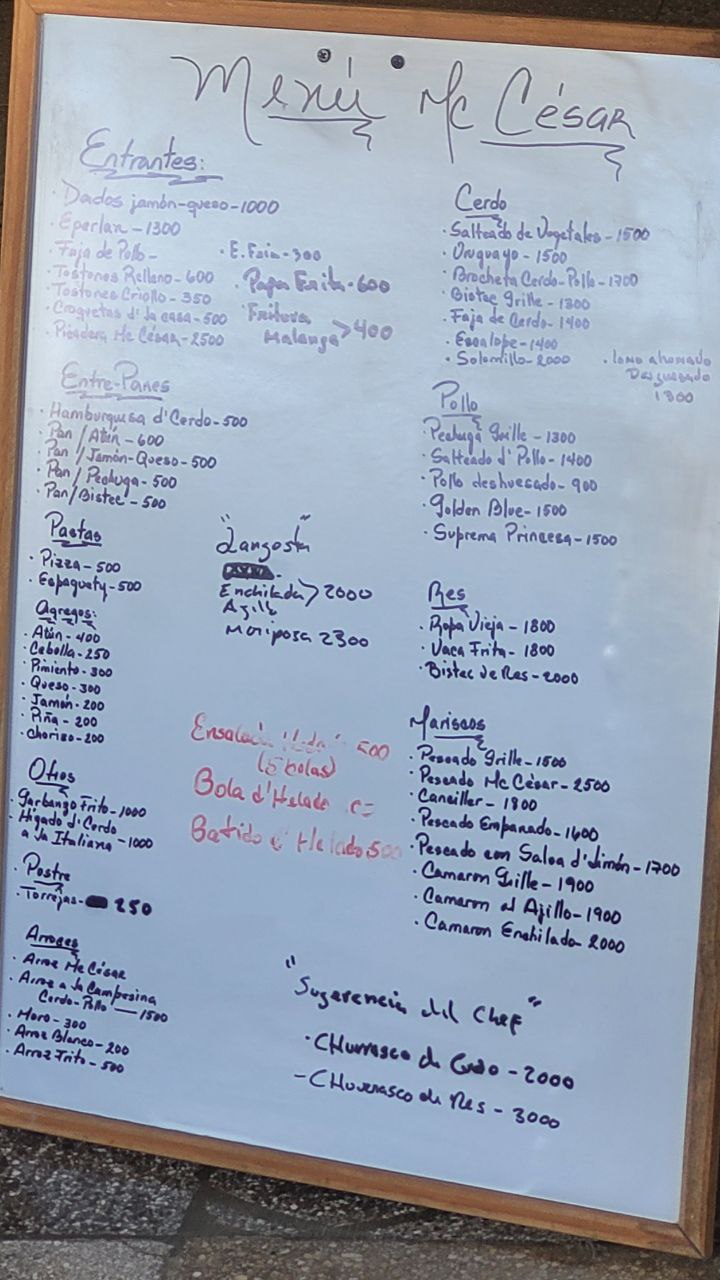 Menú Mc César
Entrantes:
· Dados jamón-queso-1000
· Eperlan - 1300
· Faja de Pollo-
· Tostones Relleno - 600
· Tostones Criollo - 350
· Croquetas d' la casa - 500
· Picadera Mc César - 2500
· E. Fria - 300
· Papa Frita - 600
· Fritura
Malanga > 400
Entre-Panes
· Hamburguesa d' Cerdo - 500
· Pan / Atún - 600
· Pan / Jamón-Queso - 500
· Pan / Pechuga - 500
· Pan / Bistec - 500
Pastas
· Pizza - 500
· Espaguety - 500
Agregos:
· Atún - 400
· Cebolla - 250
· Pimiento - 300
· Queso - 300
· Jamón - 200
· Piña - 200
· Chorizo - 200
Otros
· Garbanzo Frito - 1000
· Hígado d' Cerdo
a la Italiana - 1000
· Postre
· Torrejas - 250
Arroces
· Arroz Mc César
· Arroz a la Campesina
Cerdo-Pollo — 1500
· Moro - 300
· Arroz Blanco - 200
· Arroz Frito - 500
"Langosta"
Enchilada > 2000
Mariposa 2300
Ensalada 500
(5 bolas)
Bola d' Helado
Batido Helado 500
Cerdo
· Salteado de Vegetales - 1500
· Uruguayo - 1500
· Brocheta Cerdo-Pollo - 1700
· Bistec Grille - 1300
· Faja de Cerdo - 1400
· Escalope - 1400
· Solomillo - 2000
· lomo ahumado
Deshuesado
1300
Pollo
· Pechuga Grille - 1300
· Salteado d' Pollo - 1400
· Pollo deshuesado - 900
· Golden Blue - 1500
· Suprema Princesa - 1500
Res
· Ropa Vieja - 1800
· Vaca Frita - 1800
· Bistec de Res - 2000
Mariscos
· Pescado Grille - 1500
· Pescado Mc César - 2500
· Canciller - 1800
· Pescado Empanado - 1600
· Pescado con Salsa d' Limón - 1700
· Camaron Grille - 1900
· Camaron al Ajillo - 1900
· Camaron Enchilado 2000
"Sugerencia del Chef"
· CHurrasco de Cerdo - 2000
- CHurrasco de Res - 3000